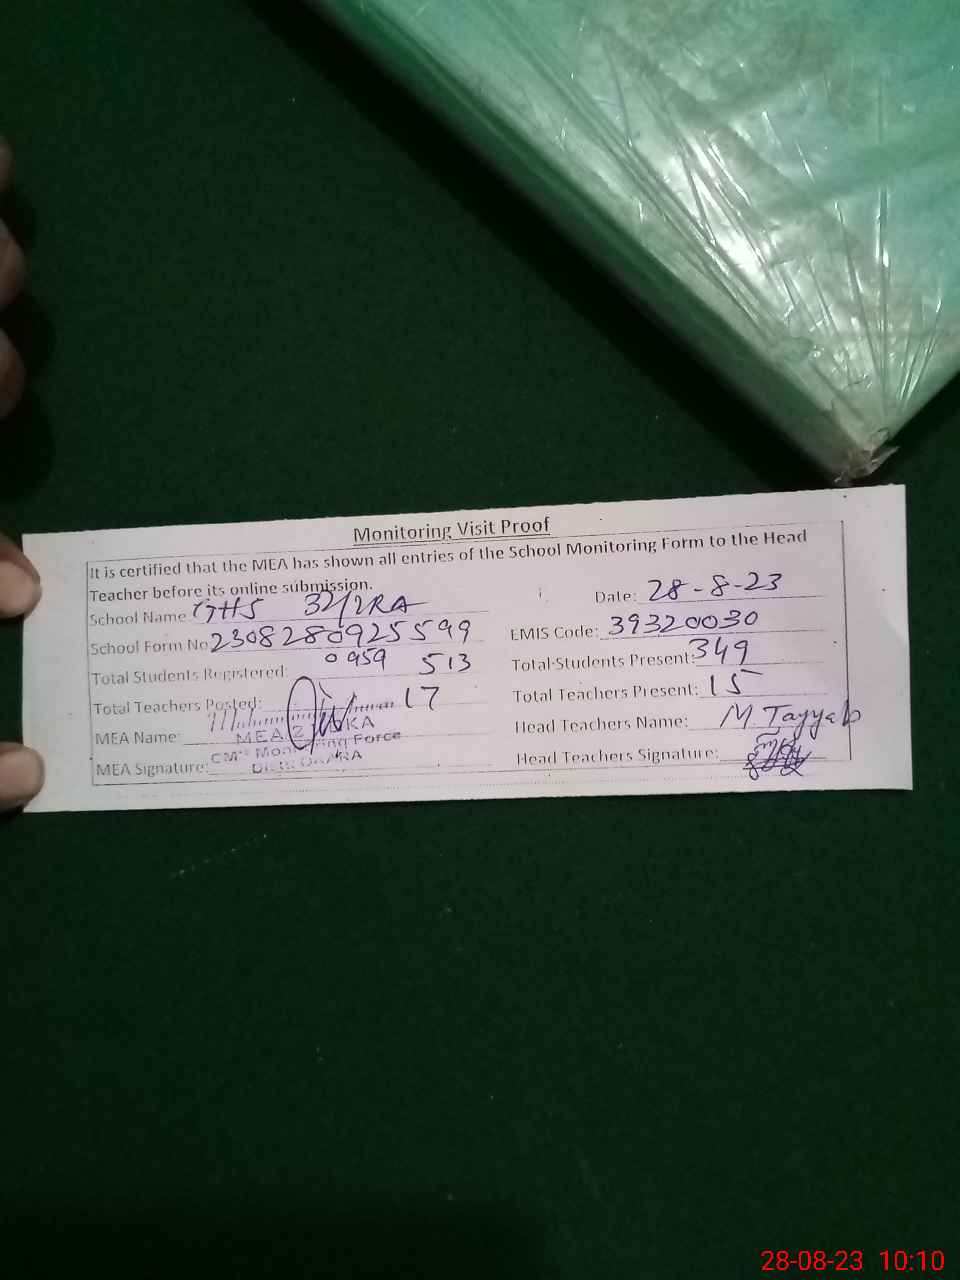 Monitoring Visit Proof
It is certified that the MEA has shown all entries of the School Monitoring Form to the Head
Teacher before its online submission.
School Name GHS 32/2RA Date: 28-8-23
School Form No 2308280925599 EMIS Code: 39320030
0959
Total Students Registered: 513 Total Students Present: 349
Total Teachers Posted: 17 Total Teachers Present: 15
MEA Name: MEA Head Teachers Name: M Tayyab
CM's Monitoring Force
MEA Signature: Distt OKARA Head Teachers Signature:
28-08-23 10:10